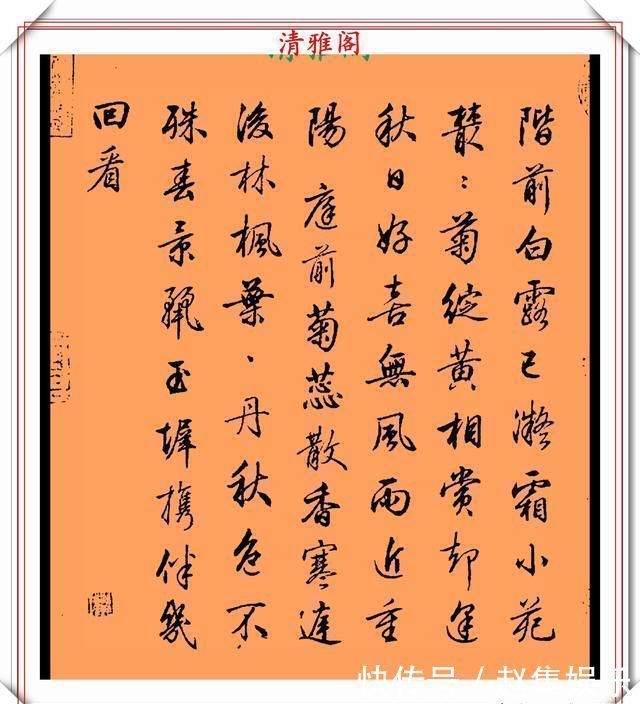 清雅阁
階前白露已凝霜小苑
叢〻菊綻黄相賞却逢
秋日好喜無風雨近重
陽 庭前菊蕊散香寒
後林楓葉〻丹秋色不
殊春景麗玉墀携伴幾
回看
快传号 / 赵集娱乐